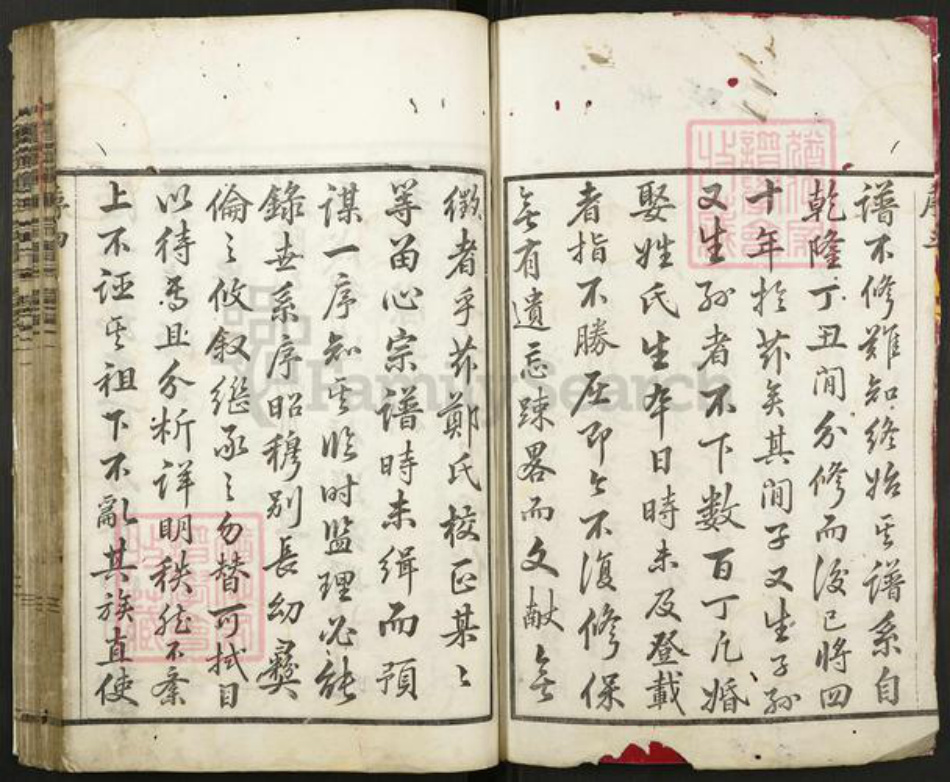 譜不修難知終始其譜系自
乾隆丁丑間分修而後已將四
十年於茲矣其間子又生子孫
又生孫者不下數百丁凡婚
娶姓氏生卒日時未及登載
者指不勝屈即今不復修保
無有遺忘踈畧而文献無
徵者乎茲鄭氏校正某〻
等留心宗譜時未緝而預
謀一序知其臨时监理必能
錄世系序昭穆別長幼彝
倫之攸叙继承之勿替可拭目
以待焉且分析详明秩然不紊
上不诬其祖下不亂其族直使
FamilySearch